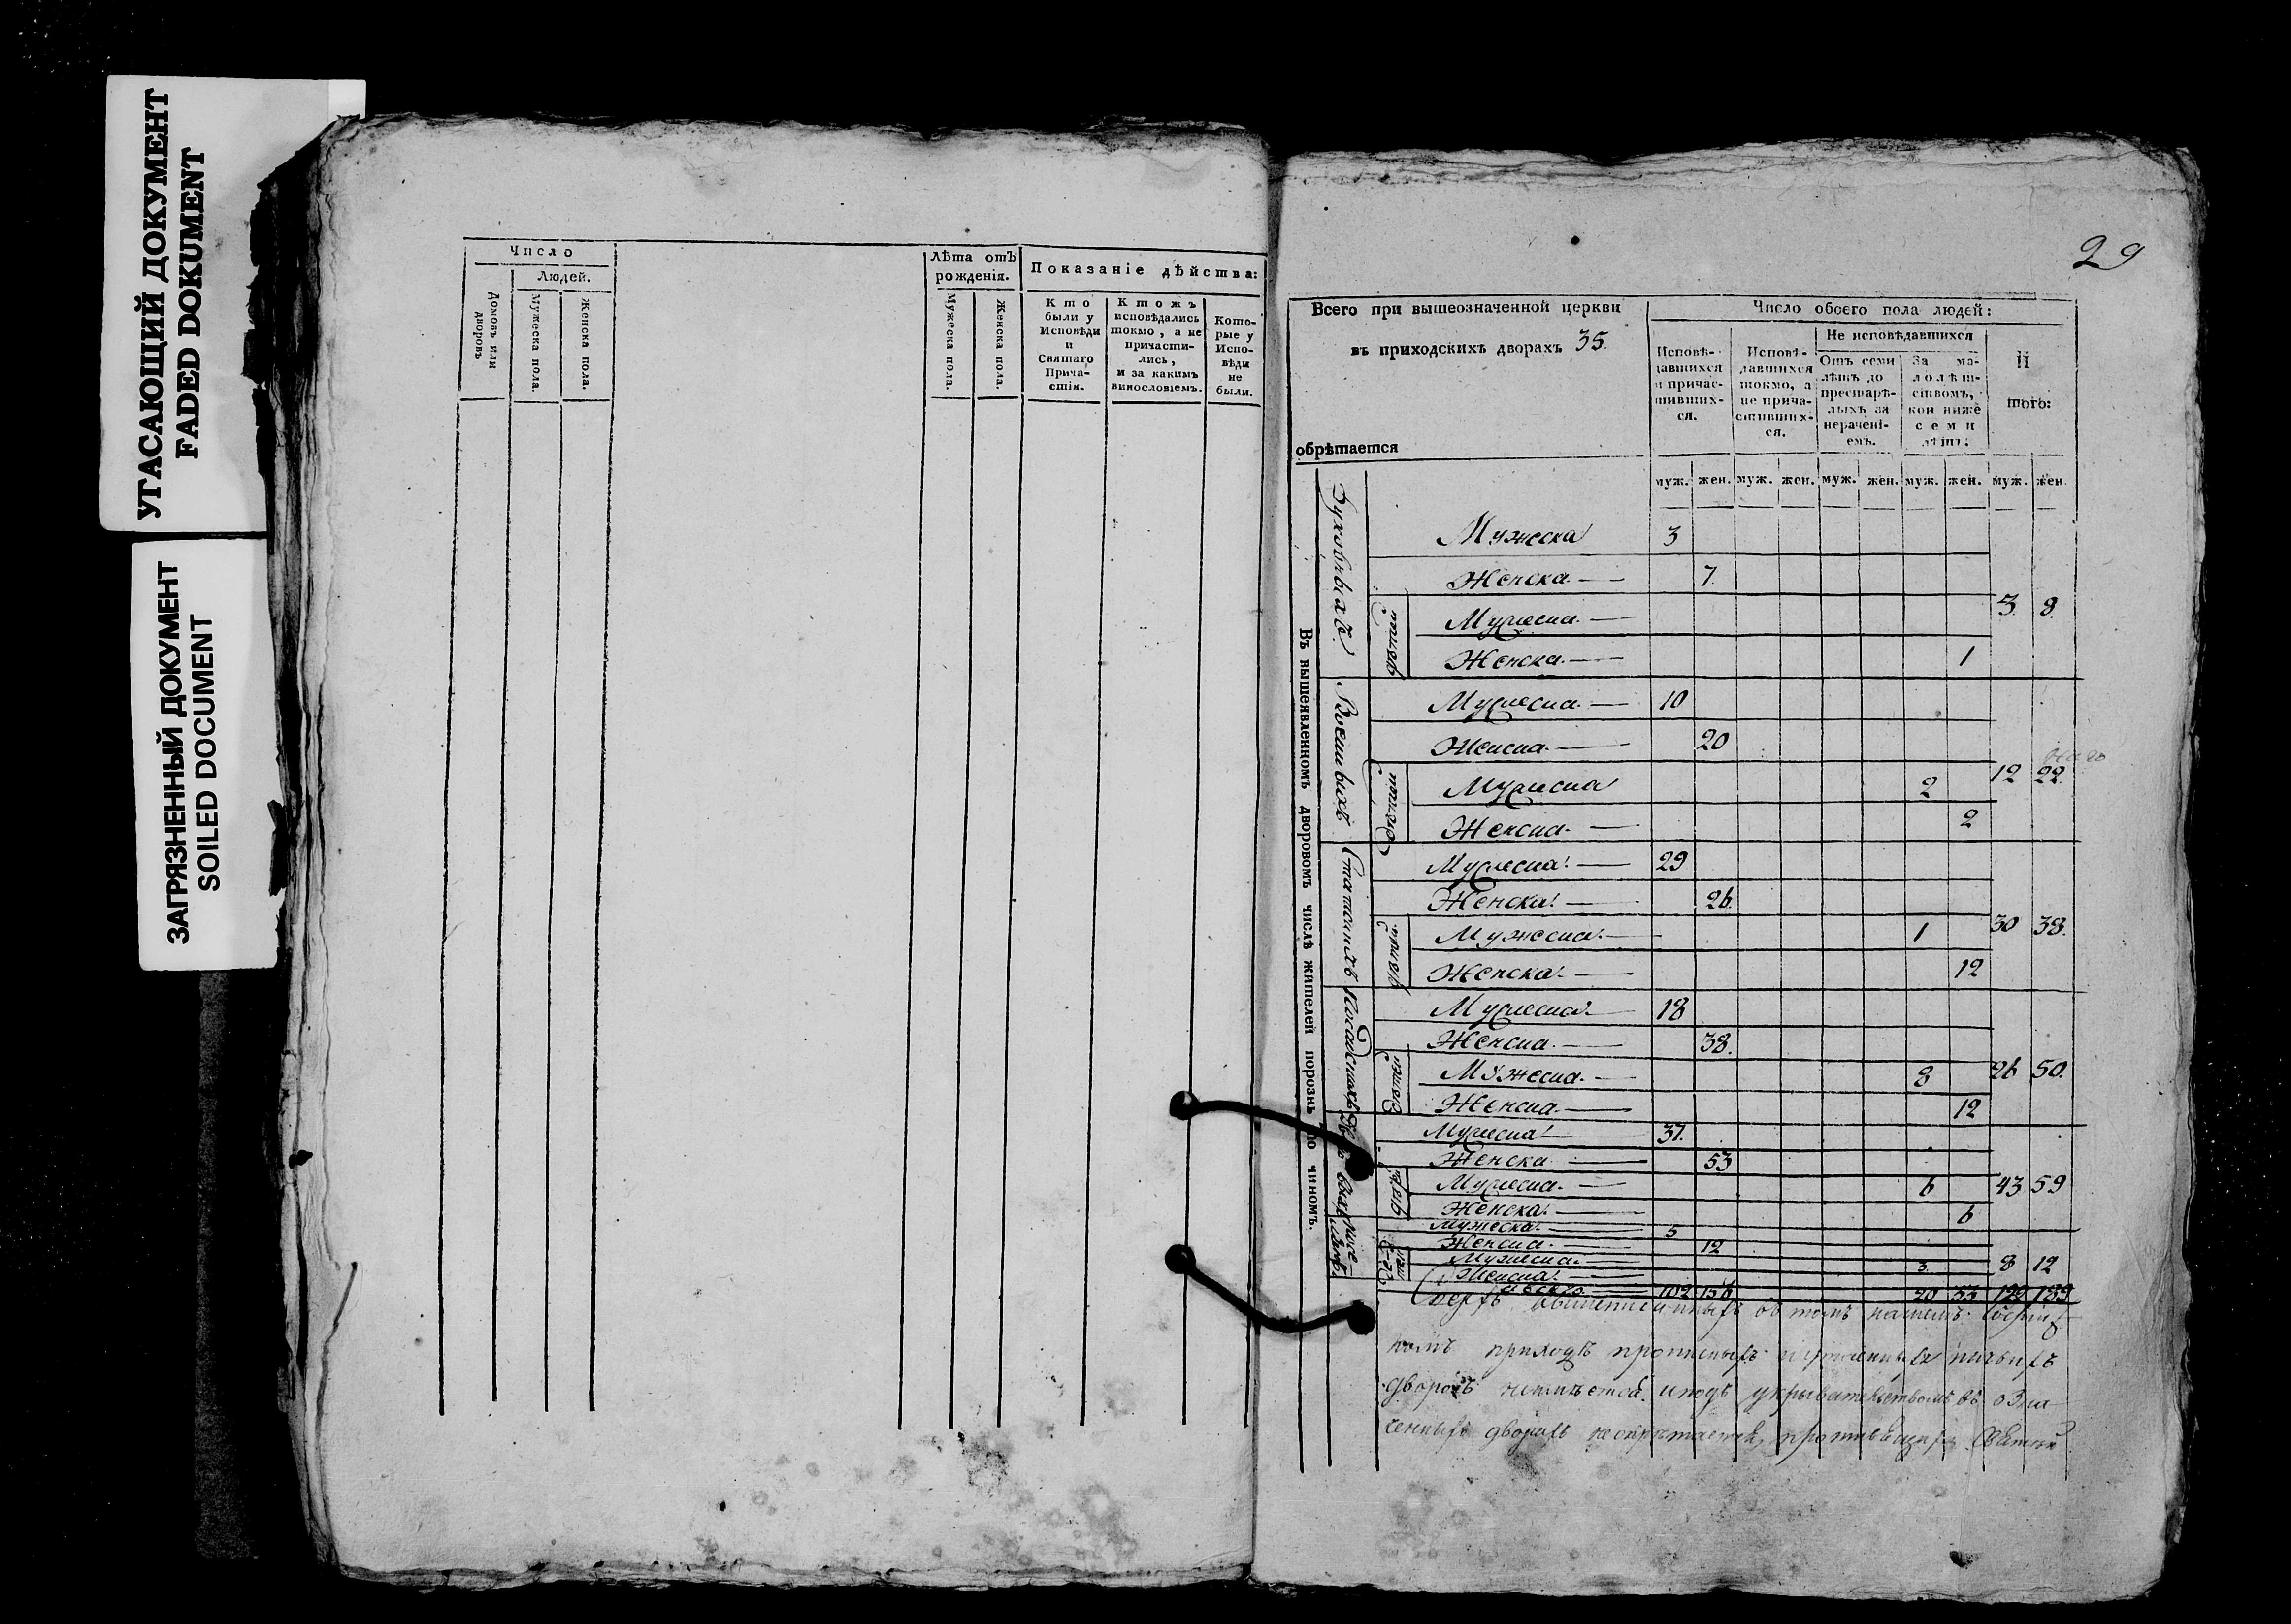 УГАСАЮЩИЙ ДОКУМЕНТ
FADED DOKUMENT
ЗАГРЯЗНЕННЫЙ ДОКУМЕНТ
SOILED DOCUMENT
Число
Людей.
Домовъ или
дворовъ
Мужеска пола.
Женска пола.
Лѣта отъ
рожденія.
Мужеска пола.
Женска пола.
Показаніе дѣйства:
Кто
были у
Исповѣди
и
Святаго
Прича-
стія.
Ктожъ
исповѣдались
токмо, а не
причасти-
лись,
и за какимъ
винословіемъ.
Кото-
рые у
Испо-
вѣди
не
были.
29
Всего при вышеозначенной церкви
въ приходскихъ дворахъ 35.
обрѣтается
Число обоего пола людей:
Исповѣ-
давшихся
и причас-
тивших-
ся.
Исповѣ-
давшихся
токмо, а
не прича-
стивших-
ся.
Не исповѣдавшихся
Отъ семи
лѣтъ до
престарѣ-
лыхъ за
нерачені-
емъ.
За ма-
лолѣт-
ствомъ,
кои ниже
семи
лѣтъ:
И
того:
муж. жен. муж. жен. муж. жен. муж. жен. муж. жен.
Въ вышеявленномъ дворовомъ числѣ жителей порознь по чиномъ.
Духовныхъ
Мужеска 3
Женска 7.
дѣтей
Мужеска 3. 8.
Женска 1
Военныхъ
Мужеска 10
Женска 20
дѣтей
Мужеска 2 12 22.
Женска 2
Статскихъ
Мужеска 29
Женска 26.
дѣтей
Мужеска 1 30 38.
Женска 12
Мужеска 18
Женска 38.
дѣтей
Мужеска 8 26 50.
Женска 12
Мужеска 37.
Женска 53
дѣтей
Мужеска 6 43 59
Женска 6
Мужеска 5
Женска 12
дѣтей
Мужеска 3. 8 12
Женска
102 156 20 33 122 189
приходѣ
дворовъ укрывательствомъ въ озна
ченныхъ дворахъ